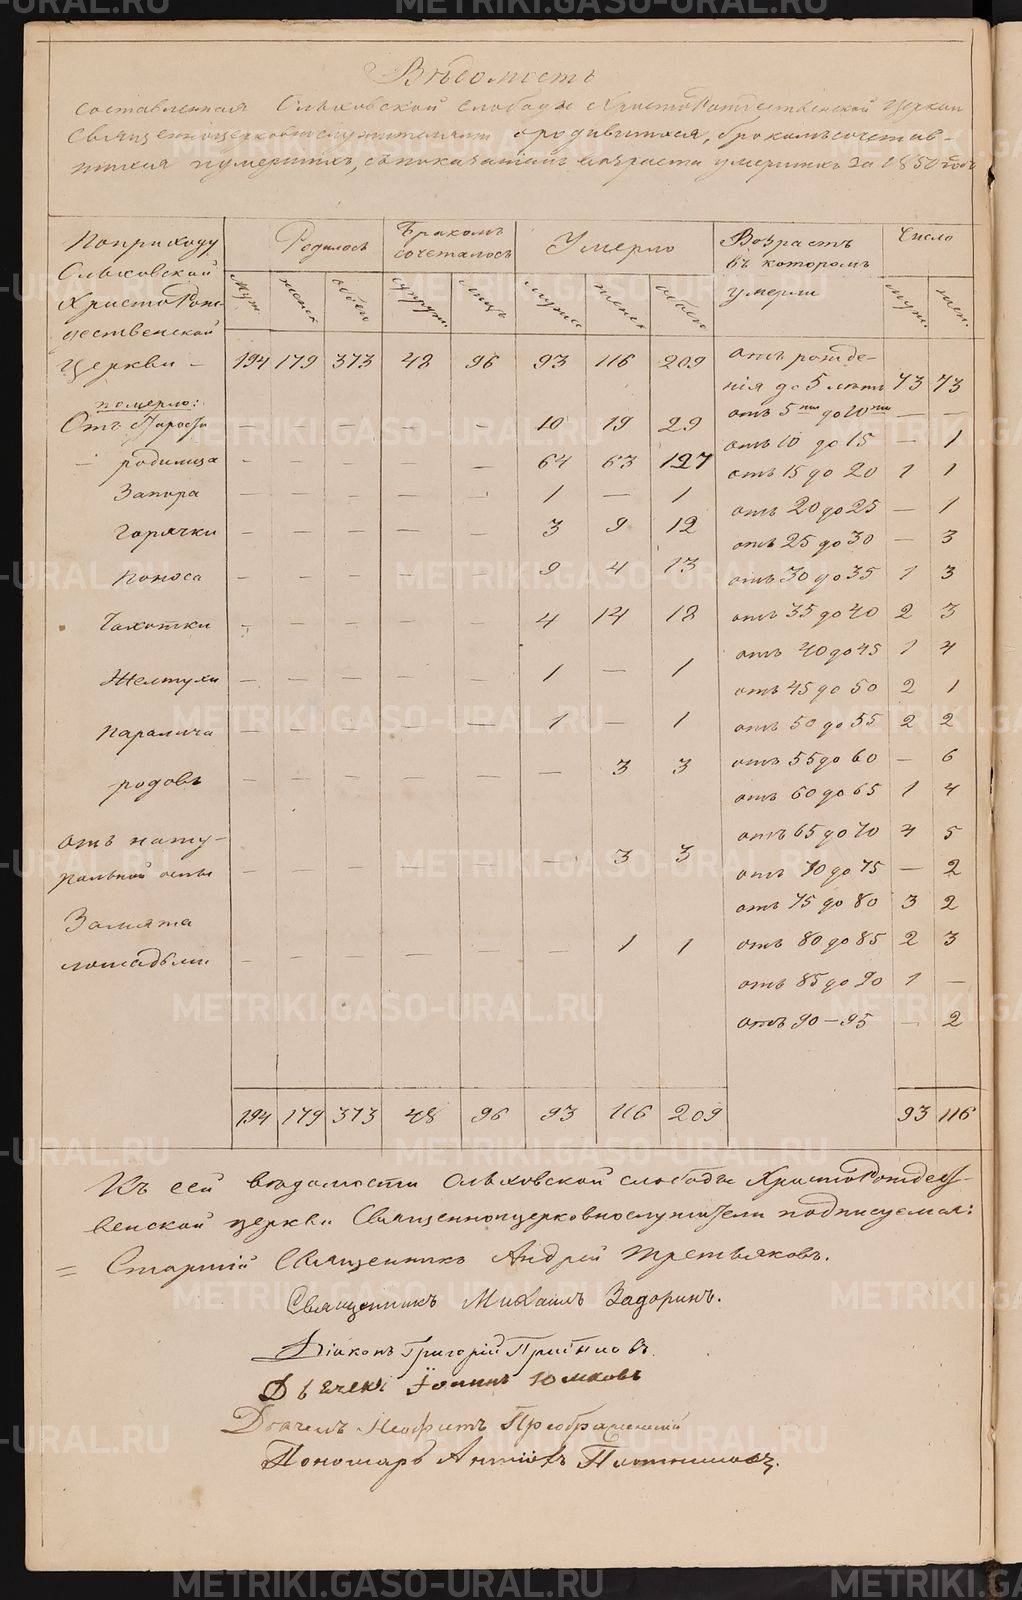 Вѣдомость
составленная Ольховской слободы Христорождественской церкви
Священноцерковнослужителями о родившихся, бракомъ сочетав-
шихся и умершихъ, съ показаніемъ возраста умершихъ за 1850 годъ
По приходу Ольховской Христорождественской Церкви –
Родилось
Бракомъ сочеталось
Умерло
Возрастъ въ которомъ умерли
Число
муж. женск обоего супруж. лицъ мужес женск обоего муж. жен.
194 179 373 48 96 93 116 209 отъ рожде-
нія до 5 лѣтъ 73 73
померло:
отъ 5ти до 10ти — —
— — — — — 10 19 29
отъ 10 до 15 — 1
– родимца — — — — — 64 63 127
отъ 15 до 20 1 1
Запора — — — — — 1 — 1
отъ 20 до 25 — 1
Горячки — — — — — 3 9 12
отъ 25 до 30 — 3
Поноса — — — — — 9 4 13
отъ 30 до 35 1 3
Чахотки — — — — — 4 14 18
отъ 35 до 40 2 3
отъ 40 до 45 1 4
Желтухи — — — — — 1 — 1
отъ 45 до 50 2 1
Паралича — — — — — 1 — 1
отъ 50 до 55 2 2
отъ 55 до 60 — 6
родовъ — — — — — — 3 3
отъ 60 до 65 1 4
отъ 65 до 70 4 5
отъ нату-
ральной оспы — — — — — — 3 3
отъ 70 до 75 — 2
отъ 75 до 80 3 2
Замята
лошадьми — — — — — — 1 1
отъ 80 до 85 2 3
отъ 85 до 90 1 —
отъ 90 – 95 — 2
194 179 373 48 96 93 116 209 93 116
Къ сей вѣдомости Ольховской слободы Христорождест-
венской церкви Священноцерковнослужители подписуемся:
= Старшій Священникъ Андрей Третьяковъ.
Священникъ Михаилъ Задоринъ.
Діаконъ Григорій
Дьячекъ Іоаннъ
Дьячекъ Неофитъ Преображенскій
Пономарь
METRIKI.GASO-URAL.RU